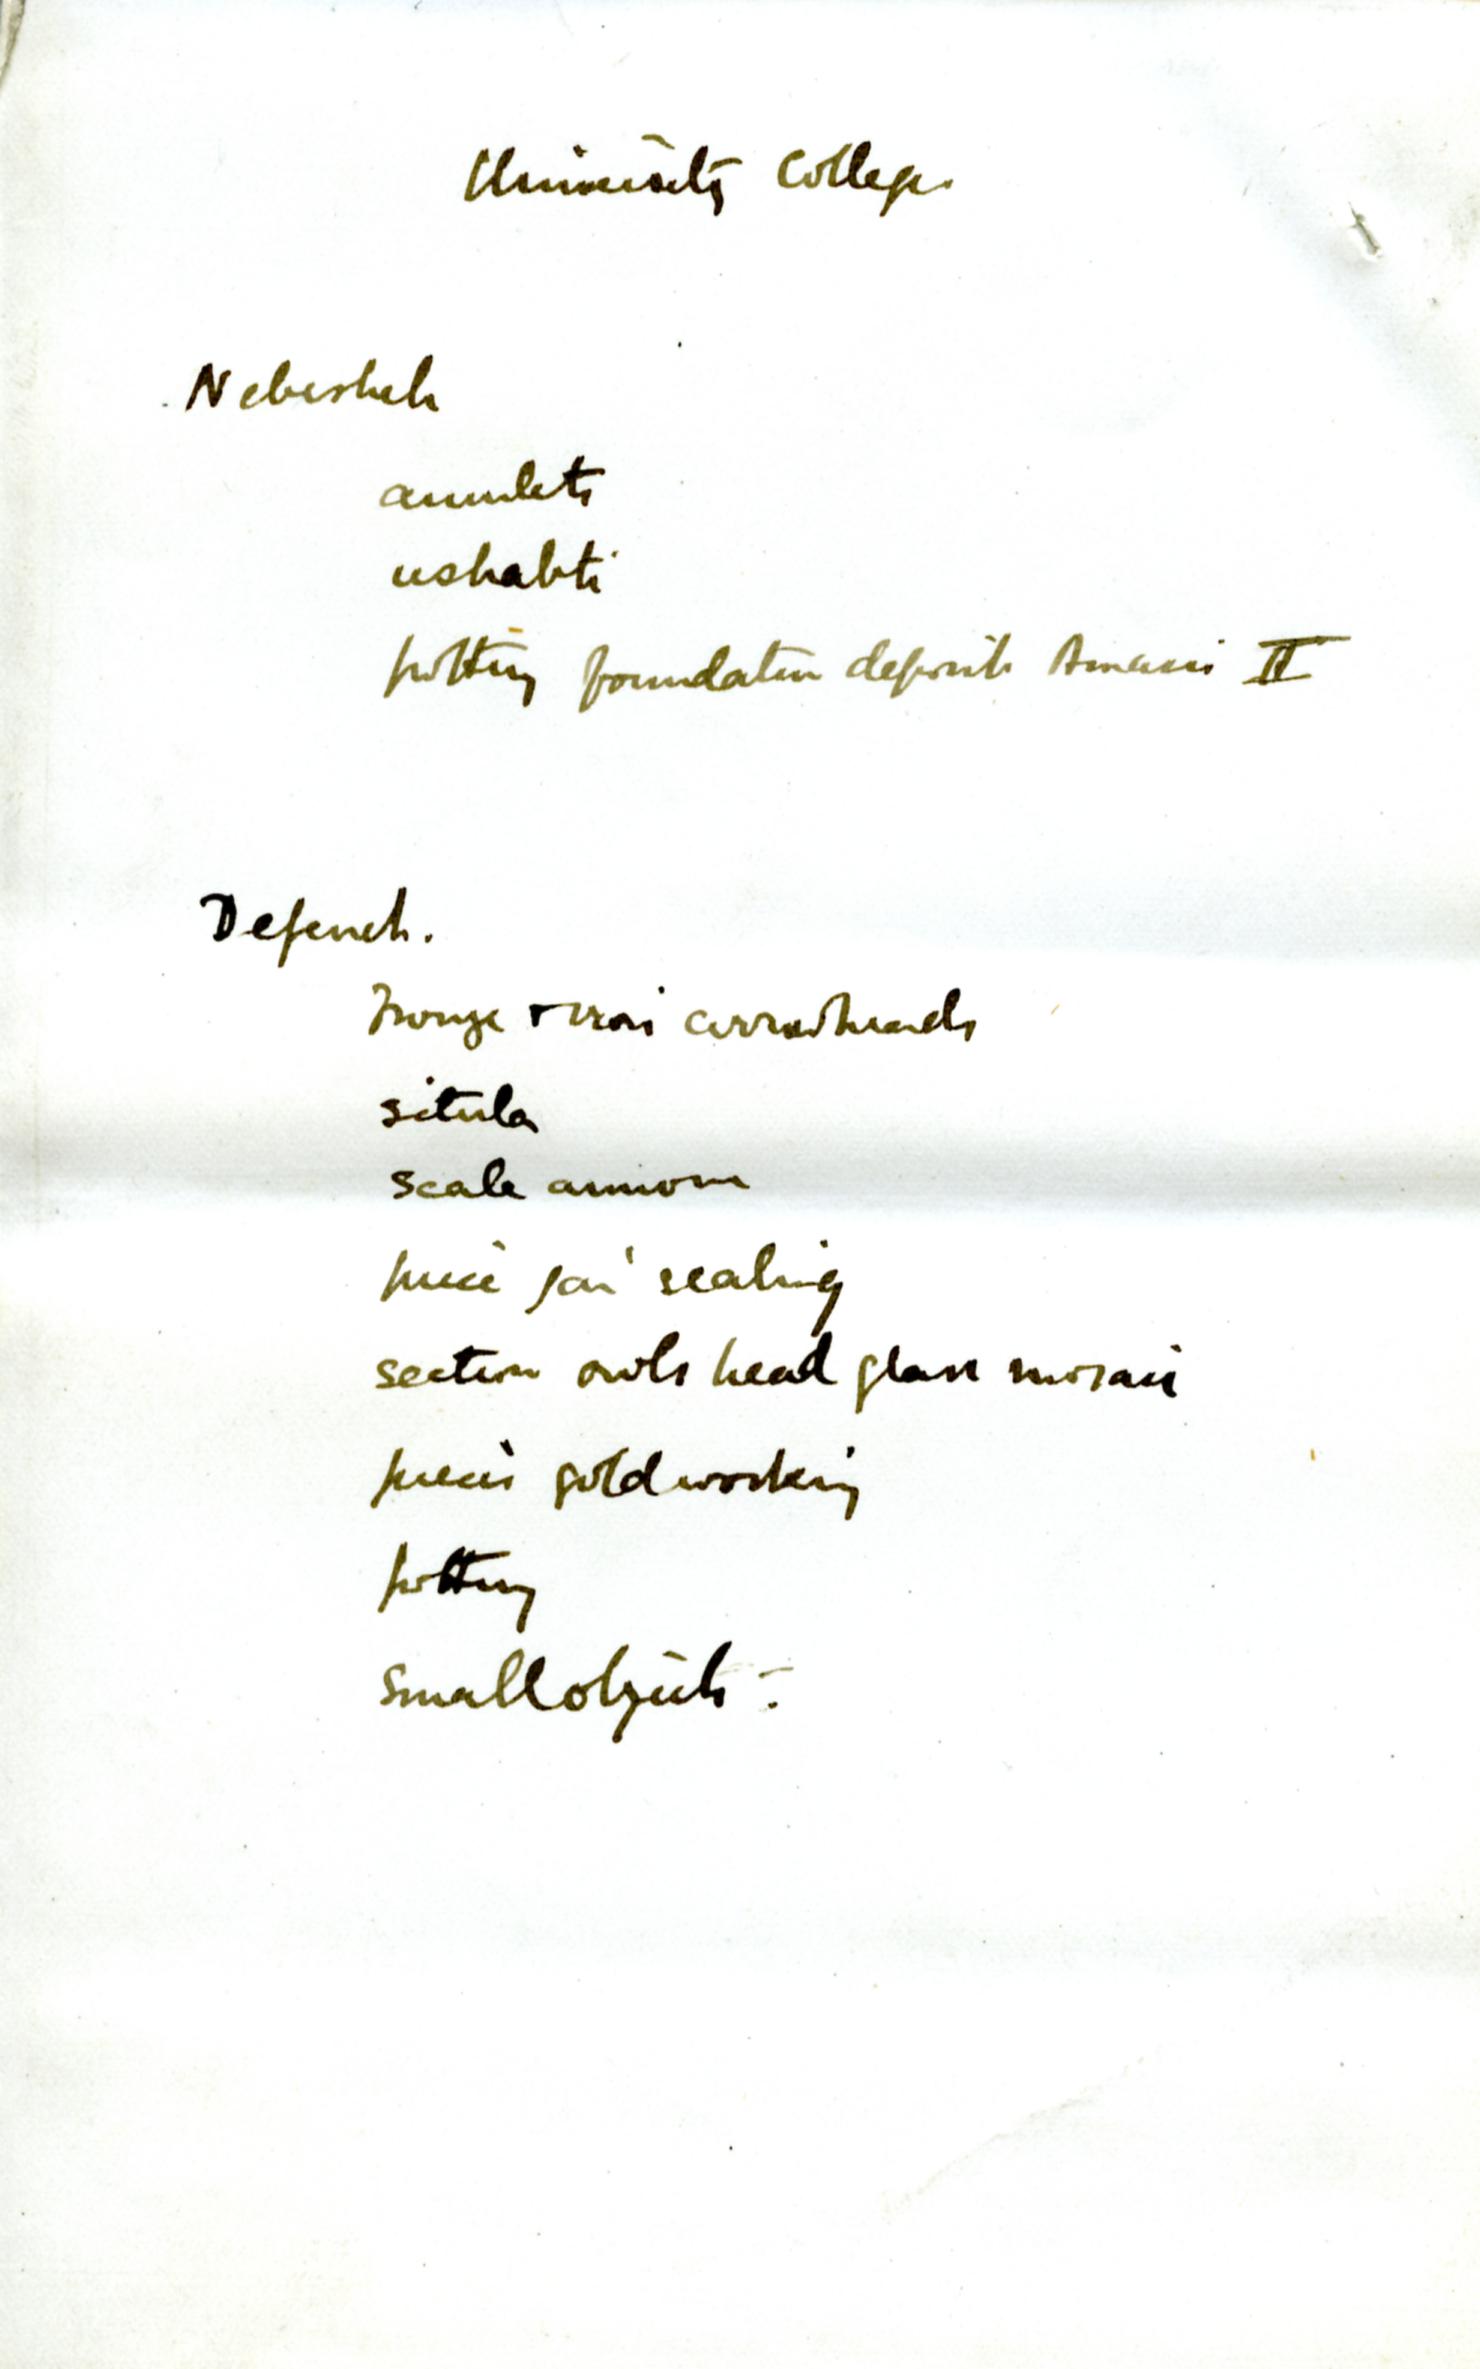 University College.
Nebesheh
amulets
ushabti
pottery foundation deposit Amasis II
Defeneh.
bronze + iron arrowheads
situla
scale armour
piece jar sealing
section owls head glass mosaic
pieces gold working
pottery
small objects.